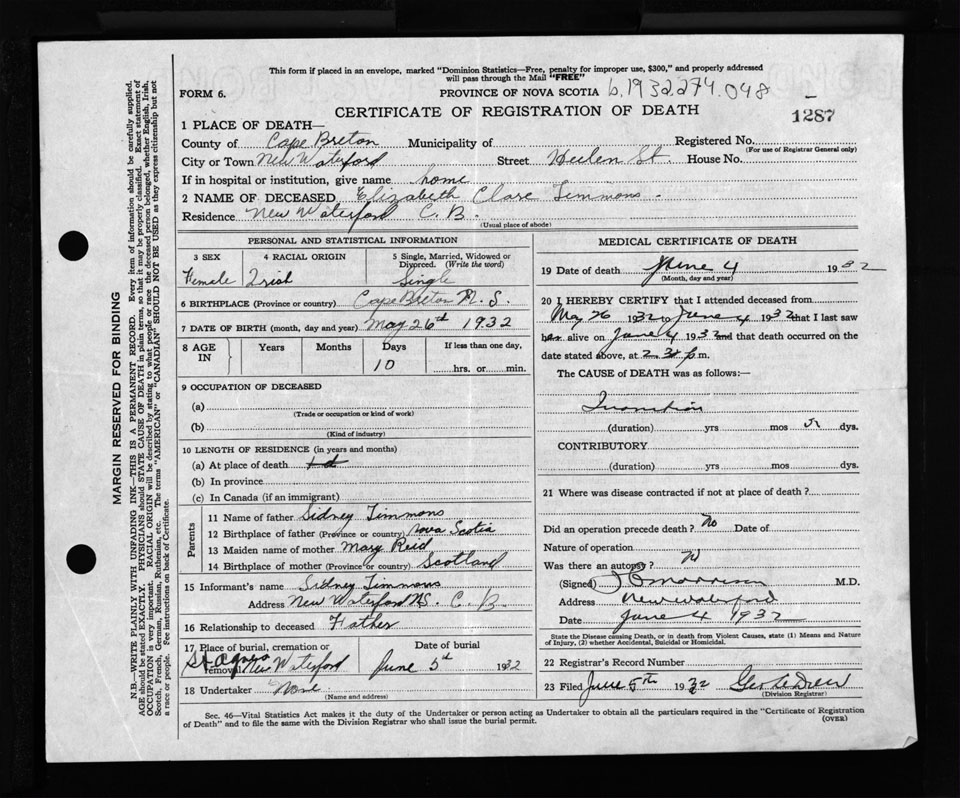 This form if placed in an envelope, marked "Dominion Statistics—Free, penalty for improper use, $300," and properly addressed
will pass through the Mail "FREE"
FORM 6.
PROVINCE OF NOVA SCOTIA b.1932.274.048
CERTIFICATE OF REGISTRATION OF DEATH
1287
1 PLACE OF DEATH—
County of Cape Breton Municipality of Registered No.
(For use of Registrar General only)
City or Town New Waterford Street St House No.
If in hospital or institution, give name home
2 NAME OF DECEASED Elizabeth Clare Timmons
Residence New Waterford C. B.
(Usual place of abode)
PERSONAL AND STATISTICAL INFORMATION
3 SEX
Female
4 RACIAL ORIGIN
Irish
5 Single, Married, Widowed or
Divorced. (Write the word)
Single
6 BIRTHPLACE (Province or country) Cape Breton N. S.
7 DATE OF BIRTH (month, day and year) May 26th 1932
8 AGE
IN
Years
Months
Days
10
If less than one day,
hrs. or min.
9 OCCUPATION OF DECEASED
(a)
(Trade or occupation or kind of work)
(b)
(Kind of industry)
10 LENGTH OF RESIDENCE (in years and months)
(a) At place of death
(b) In province
(c) In Canada (if an immigrant)
Parents
11 Name of father Sidney Timmons
12 Birthplace of father (Province or country) Nova Scotia
13 Maiden name of mother Mary Reid
14 Birthplace of mother (Province or country) Scotland
15 Informant's name Sidney Timmons
Address New Waterford NS. C. B
16 Relationship to deceased Father
17 Place of burial, cremation or
removal St Agnes New Waterford
Date of burial
June 5th 1932
18 Undertaker None
(Name and address)
MEDICAL CERTIFICATE OF DEATH
19 Date of death June 4 1932
(Month, day and year)
20 I HEREBY CERTIFY that I attended deceased from
May 26 1932 to June 4 1932 that I last saw
her alive on June 4 1932 and that death occurred on the
date stated above, at p.m.
The CAUSE of DEATH was as follows:—
Inanition
(duration) yrs mos dys.
CONTRIBUTORY
(duration) yrs mos dys.
21 Where was disease contracted if not at place of death?
Did an operation precede death? No Date of
Nature of operation
Was there an autopsy? No
(Signed) Morrison M.D.
Address New Waterford
Date June 4 1932
State the Disease causing Death, or in death from Violent Causes, state (1) Means and Nature
of Injury, (2) whether Accidental, Suicidal or Homicidal.
22 Registrar's Record Number
23 Filed June 5th 1932 Geo Drew
(Division Registrar)
Sec. 46—Vital Statistics Act makes it the duty of the Undertaker or person acting as Undertaker to obtain all the particulars required in the "Certificate of Registration
of Death" and to file the same with the Division Registrar who shall issue the burial permit.
(OVER)
MARGIN RESERVED FOR BINDING
N.B.—WRITE PLAINLY WITH UNFADING INK—THIS IS A PERMANENT RECORD. Every item of information should be carefully supplied.
AGE should be stated EXACTLY. PHYSICIANS should STATE CAUSE OF DEATH in plain terms, so that it may be properly classified. Exact statement of
OCCUPATION is very important. RACIAL ORIGIN will be described by stating to what people or race the deceased person belonged, whether English, Irish,
Scotch, French, German, Russian, Ruthenian, etc. The terms "AMERICAN" or "CANADIAN" SHOULD NOT BE USED as they express citizenship but not
a race or people. See instructions on back of Certificate.